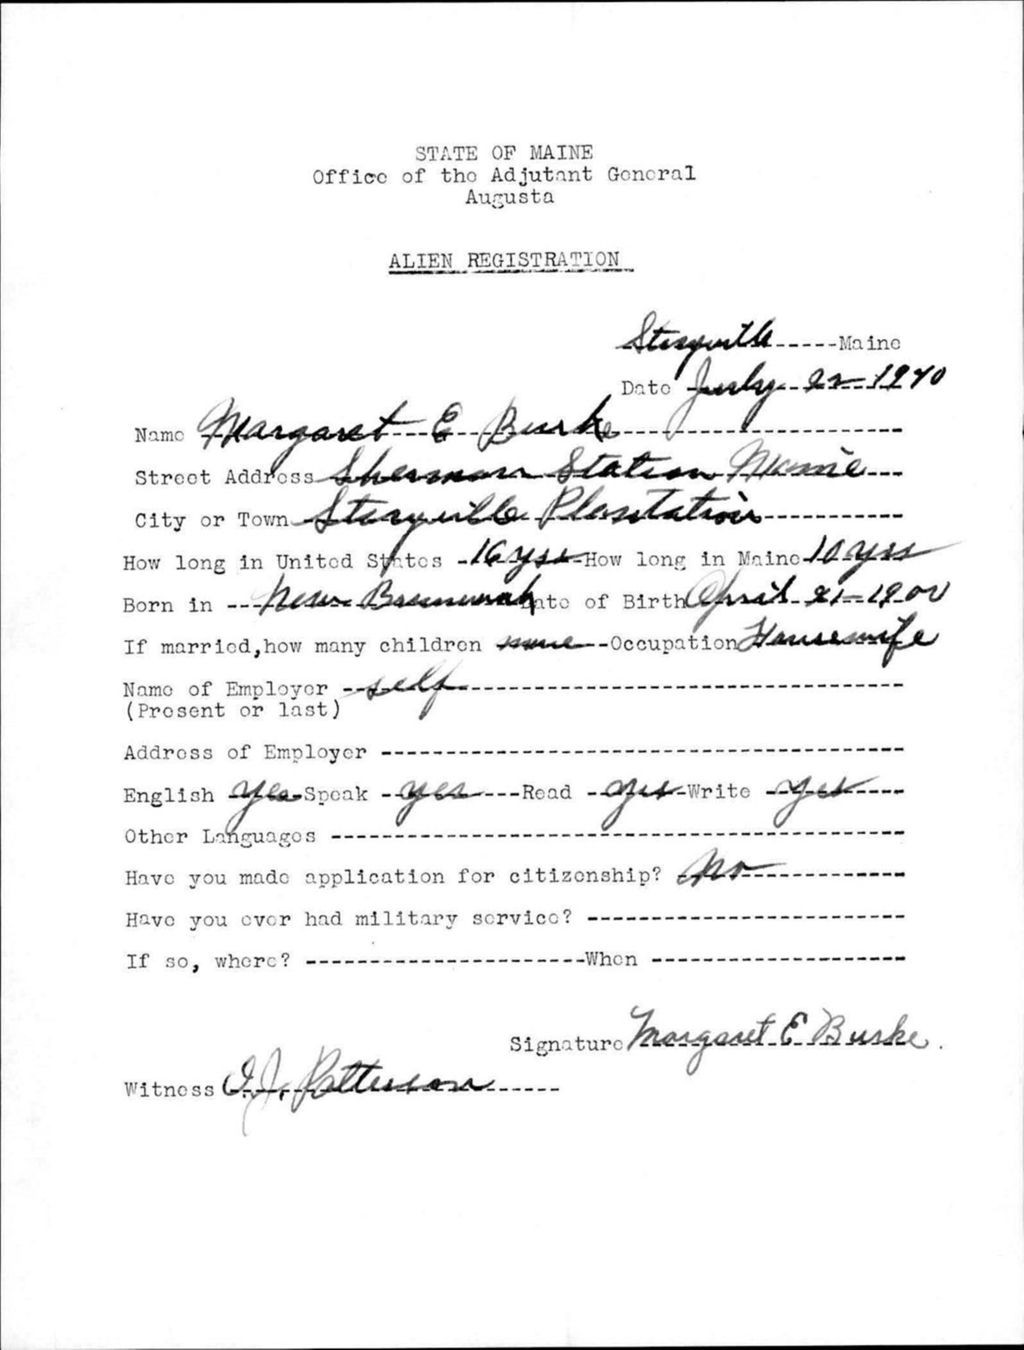 STATE OF MAINE
Office of the Adjutant General
Augusta
ALIEN REGISTRATION
Staryville Maine
Date July 22 1940
Name Margaret E Burke
Street Address Sherman Station Maine
City or Town Staryville Plantation
How long in United States 16 yrs How long in Maine 10 yrs
Born in New Brunswick Date of Birth April 21-1900
If married, how many children none Occupation Housewife
Name of Employer self
(Present or last)
Address of Employer
English Yes Speak yes Read yes Write yes
Other Languages
Have you made application for citizenship? No
Have you ever had military service?
If so, where? When
Signature Margaret E Burke.
Witness O.J. Patterson